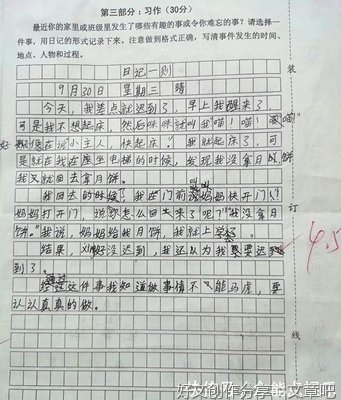 第三部分:习作(30分)
最近你的家里或班级里发生了哪些有趣的事或令你难忘的事?请选择一
件事,用日记的形式记录下来。注意做到格式正确,写清事件发生的时间、
地点、人物和过程。
装
日记一则
9月30日 星期三 晴
今天,我差点就迟到了,早上我醒来了,
可是我不想起床,然后咪咪就叫我"喵!喵!喵"
好像在说"小主人,快起床。"我就起床了,可
是就在我在座电梯的时候,发现我没拿月饼
我又就回去拿月饼。
我回去的时候,我在门前叫妈妈快开门!
妈妈打开门,说"怎么回来了呢?""我没拿月
订
饼。"我说,妈妈给我月饼,我就上学
结果,xing好没迟到,我还以为我要迟
到了。
通过这件事我知道做事情不能马虎,要
认认真真的做。
4.5
线
好文创作分享能文章吧